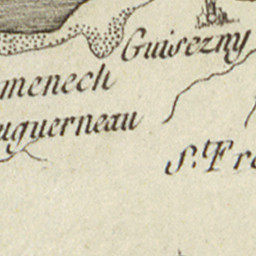 Guisezny
menech
uguerneau
S.t Fre